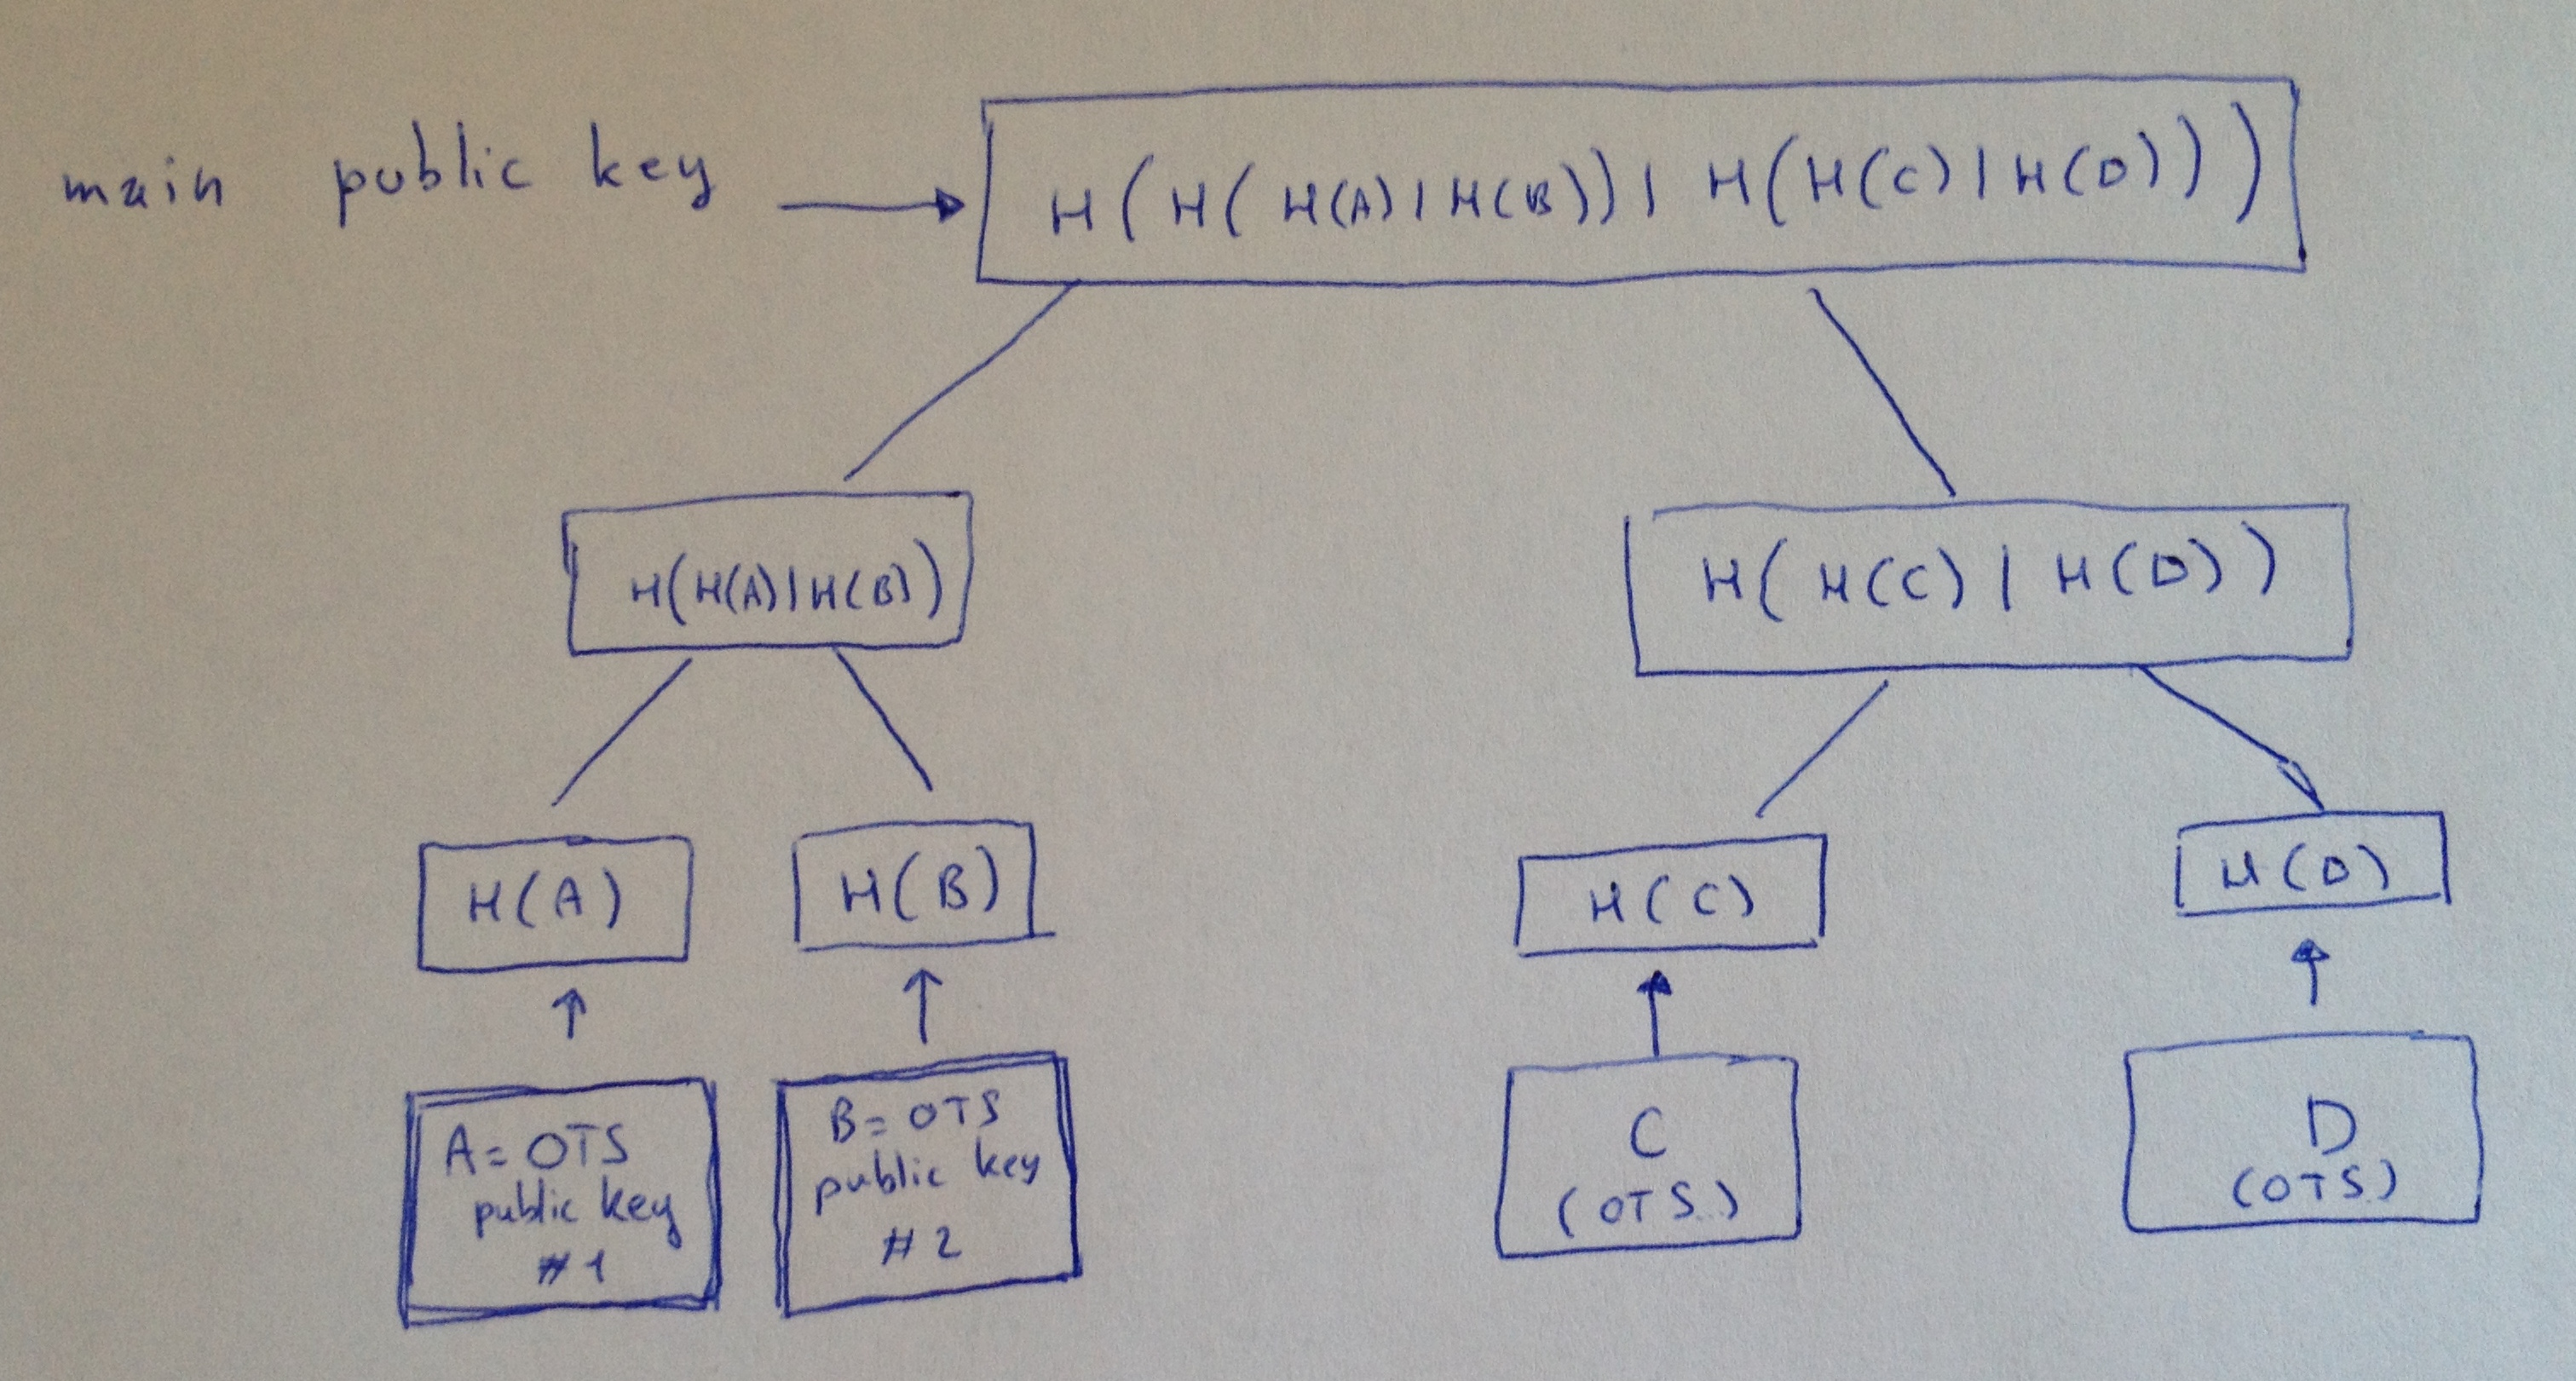 main public key
H(H(H(A)|H(B))|H(H(C)|H(D)))
H(H(A)|H(B))
H(H(C)|H(D))
H(A)
H(B)
H(C)
H(D)
A=OTS
public key
#1
B=OTS
public key
#2
C
(OTS)
D
(OTS)